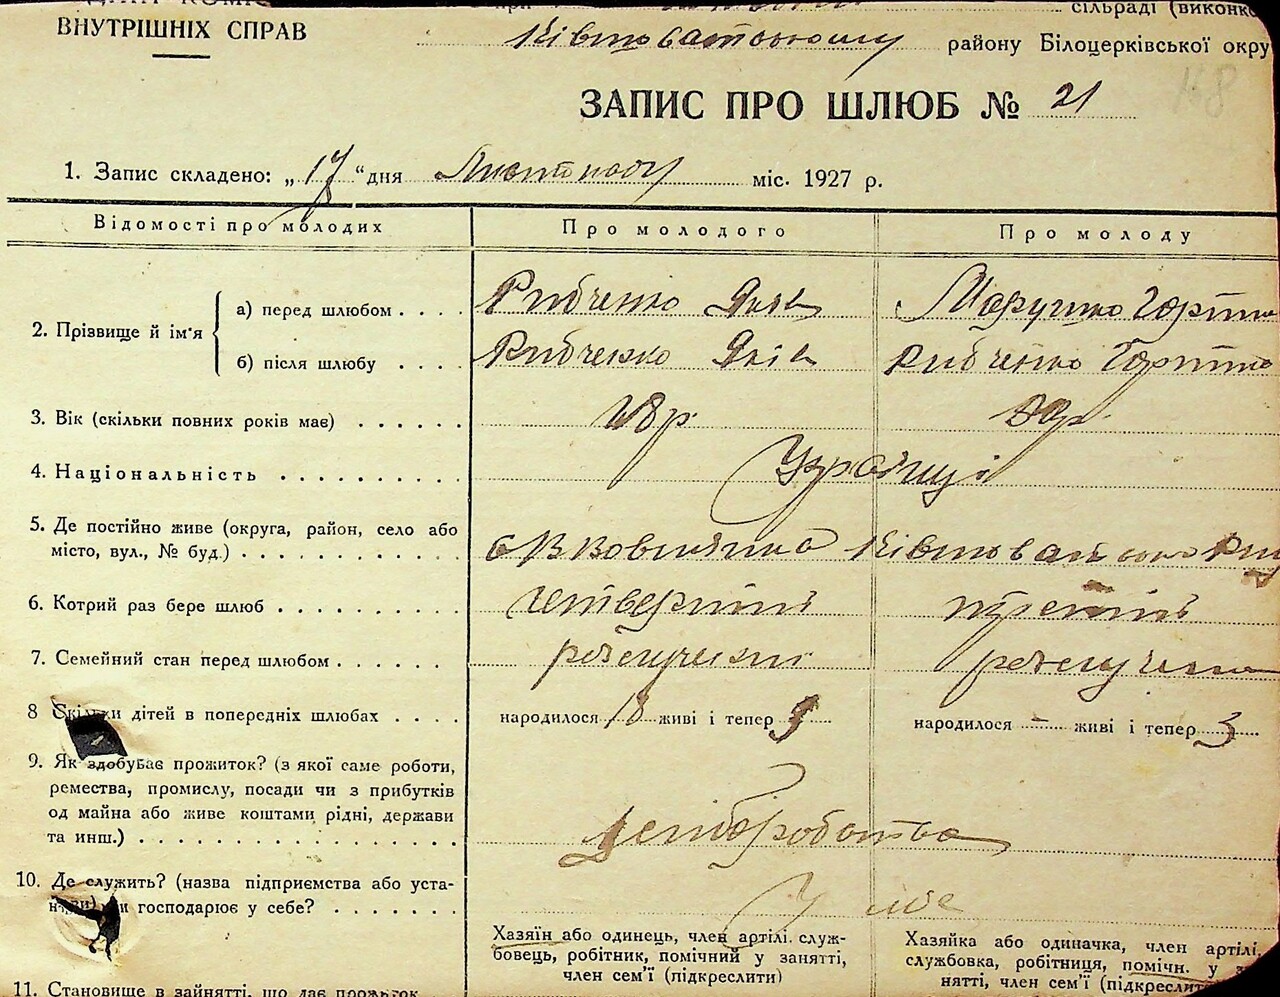 ВНУТРІШНІХ СПРАВ
сільраді (виконко
району Білоцерківської окру
ЗАПИС ПРО ШЛЮБ № 21
1. Запис складено: „ 17 “ дня Листопаду міс. 1927 р.
Відомості про молодих
Про молодого
Про молоду
2. Прізвище й ім'я
а) перед шлюбом . . . .
Рибченко Яків
Марушко Горпина
б) після шлюбу . . . .
Рибченко Яків
Рибченко Горпина
3. Вік (скільки повних років має) . . . . . .
48 р.
р.
4. Національність . . . . . . . . . .
Українці
5. Де постійно живе (округа, район, село або
місто, вул., № буд.) . . . . . . . . . . . .
6. Котрий раз бере шлюб . . . . . . . . . .
четвертий
третій
7. Семейний стан перед шлюбом . . . . . .
розлучений
розлучена
8 Скільки дітей в попередніх шлюбах . . . .
народилося 18 живі і тепер
народилося – живі і тепер 3
9. Як здобуває прожиток? (з якої саме роботи,
ремества, промислу, посади чи з прибутків
од майна або живе коштами рідні, держави
та инш.) . . . . . . . . . . . . . . . . .
10. Де служить? (назва підприємства або уста-
нови) чи господарює у себе? . . . . . . .
У себе
Хазяїн або одинець, член артілі. служ-
бовець, робітник, помічний у занятті,
член сем'ї (підкреслити)
Хазяйка або одиначка, член артілі.
службовка, робітниця, помічн. у за
нятті, член сем'ї (підкреслит
11. Становище в зайнятті, що дає прожиток